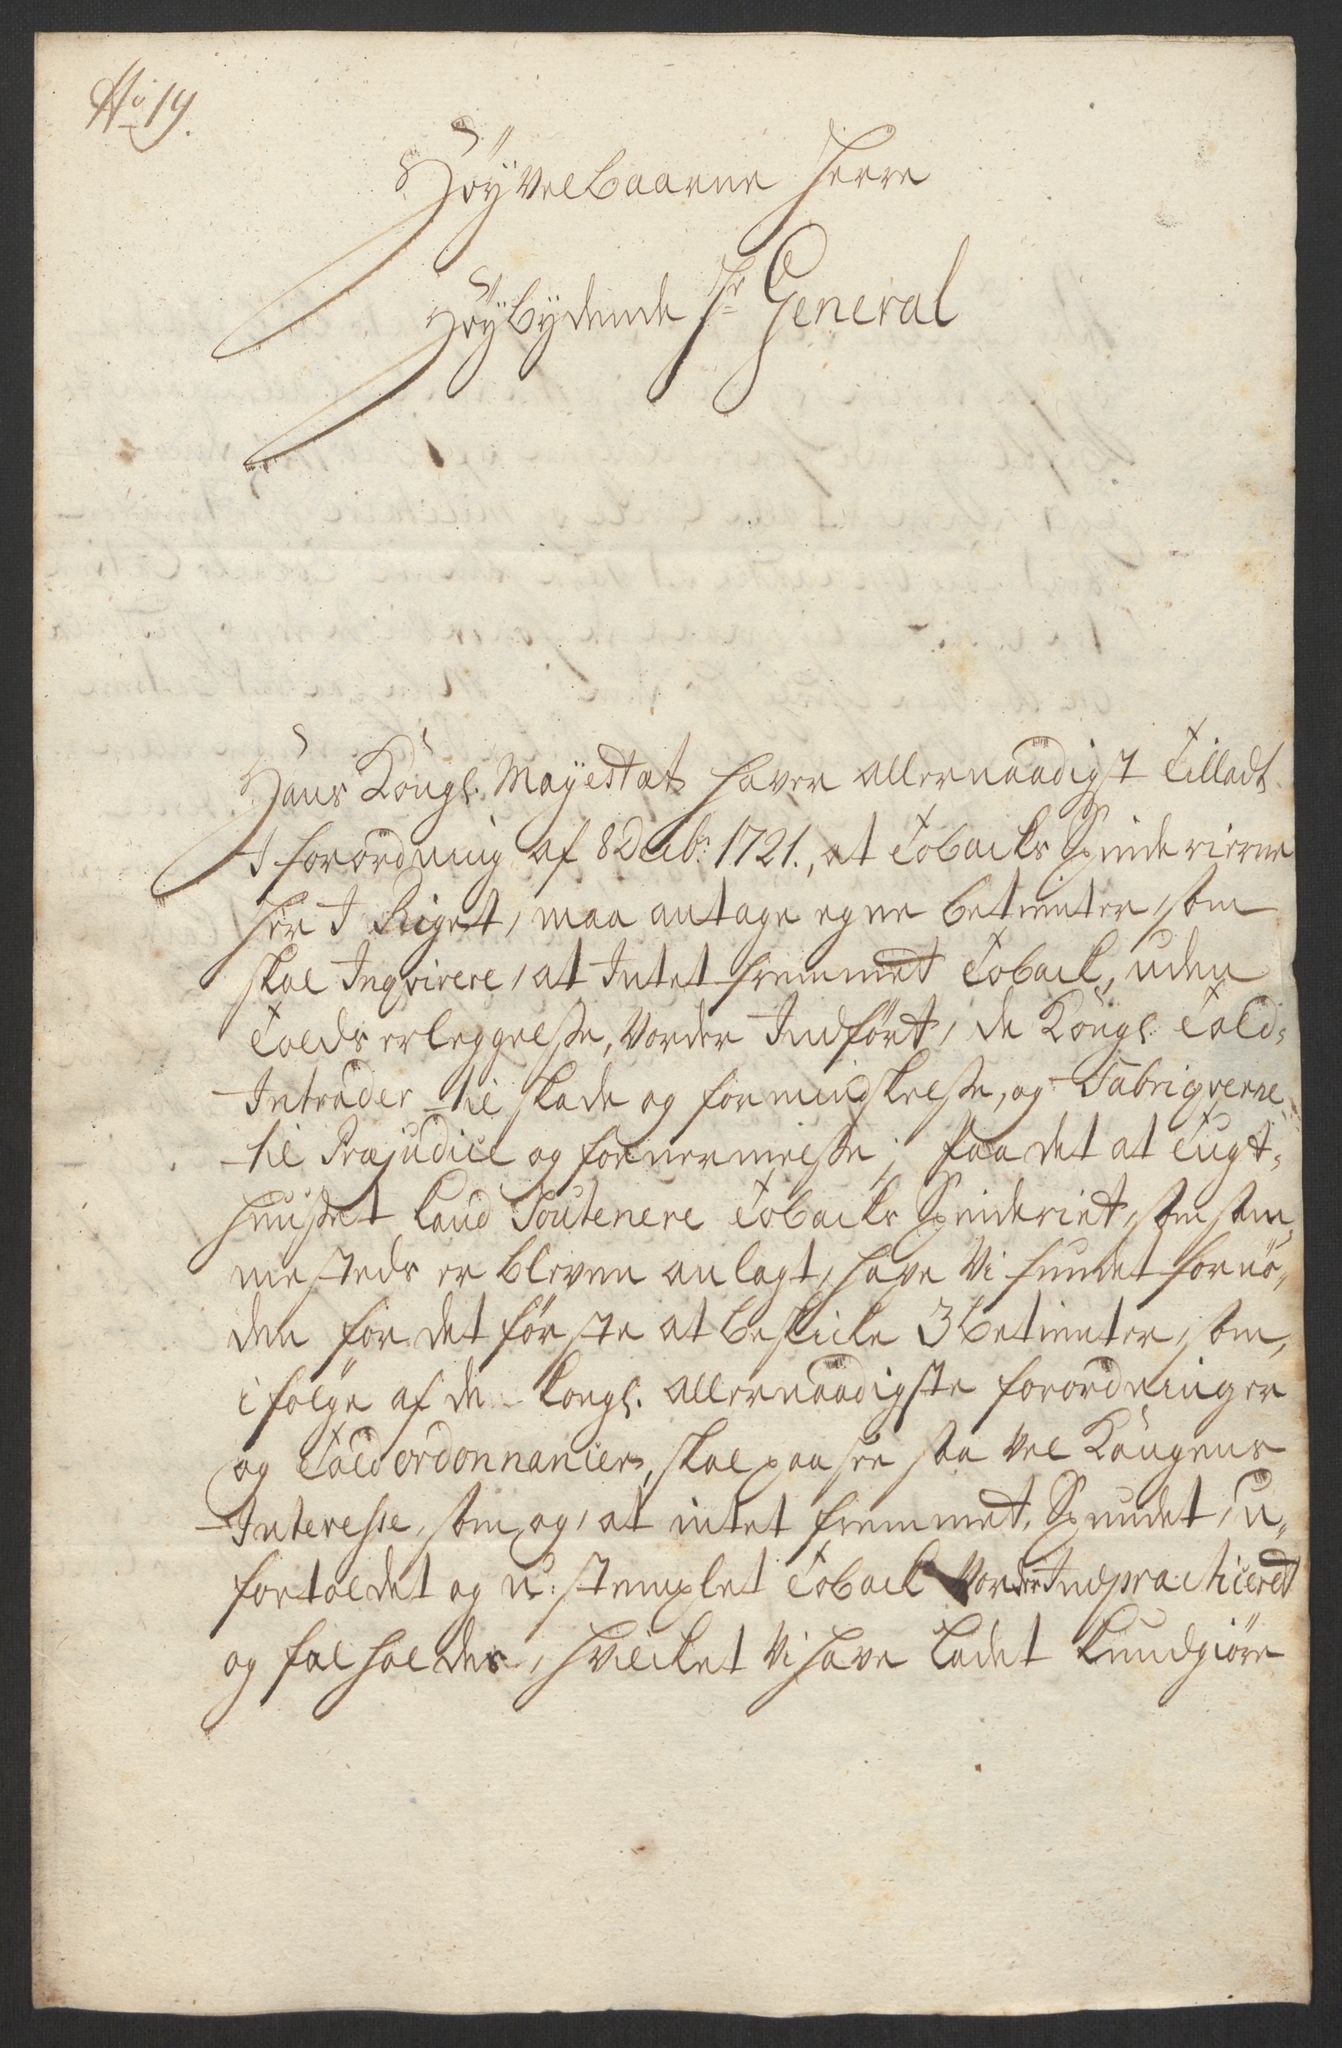 No 19.
HöyVelbaarne Herre
Höybydende Hr General
Hans Kongl. Mayestæt haver allernaadigst Tilladt
I forordning af 8 Decbr: 1721., at Tobacks Spinderierne
her I Riget, maa antage egne betienter, som
skal Inqvirere, at Intet fremmet Toback, uden
Tolds erleggelsse, Vorder Indført, de Kongl. Told-
Intrader til skade og formindskelsse, og Fabriqverne
til Præjudice og fornermelsse; Paa det at Tugt-
huusset kand Soutenere Tobacks Spinderiet, som sam-
mesteds er bleven anlagt, have Vi fundet fornö-
den for det förste at beskicke 3 betienter, som,
i følge af de Kongl. allernaadigste forordninger
og Told ordonnancier, skal paasee saa vel Kongens
Interesse, som og, at intet fremmet, Spundet, u-
fortoldet og u-stemplet Toback Vorder Indpracticeret
og falholdes, hvilcket Vi have ladet Kundgiöre